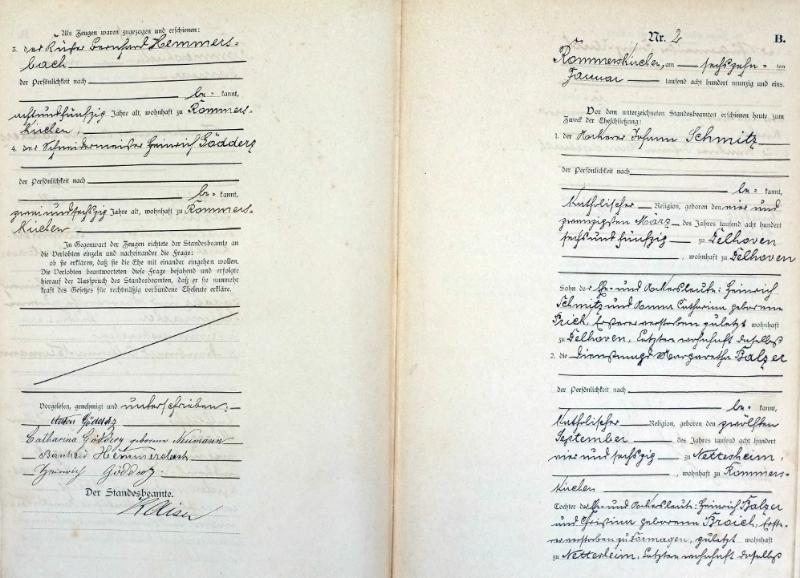 Als Zeugen waren zugezogen und erschienen:
3. der Küfer Bernhard Hemmers-
bach
der Persönlichkeit nach
be= kannt,
achtundfünfzig Jahre alt, wohnhaft zu Rommers-
kirchen,
4. der Schneidermeister Heinrich Gödderz
der Persönlichkeit nach
be= kannt,
zweiundsechszig Jahre alt, wohnhaft zu Rommers-
kirchen
In Gegenwart der Zeugen richtete der Standesbeamte an
die Verlobten einzeln und nacheinander die Frage:
ob sie erklären, daß sie die Ehe mit einander eingehen wollen.
Die Verlobten beantworteten diese Frage bejahend und erfolgte
hierauf der Ausspruch des Standesbeamten, daß er sie nunmehr
kraft des Gesetzes für rechtmäßig verbundene Eheleute erkläre.
Vorgelesen, genehmigt und unterschrieben:
Gödderz
Catharina Gödderz geborene Neumann
Hemmersbach
Heinrich Gödderz
Der Standesbeamte.
Nr. 2 B.
Rommerskirchen, am sechszehn ten
Januar tausend acht hundert neunzig und eins.
Vor dem unterzeichneten Standesbeamten erschienen heute zum
Zweck der Eheschließung:
1. der Ackerer Johann Schmitz
der Persönlichkeit nach
be= kannt,
katholischer Religion, geboren den vier und
zwanzigsten März des Jahres tausend acht hundert
sechs und fünfzig zu Gelhoven
, wohnhaft zu Gelhoven
Sohn der Ehe- und Ackersleute: Heinrich
Schmitz und Anna Catharina geborene
Erich, Ersterer verstorben zuletzt wohnhaft
zu Gelhoven, Letztere wohnhaft daselbst
2. die Dienstmagd Margaretha Balzer
der Persönlichkeit nach
be= kannt,
katholischer Religion, geboren den zwölften
September des Jahres tausend acht hundert
vier und sechszig zu Nettesheim,
, wohnhaft zu Rommers-
kirchen
Tochter der Ehe- und Ackersleute: Heinrich Balzer
und Christina geborene Broich, Erste-
rer verstorben zu Dormagen, zuletzt wohnhaft
zu Nettesheim, Letztere wohnhaft daselbst